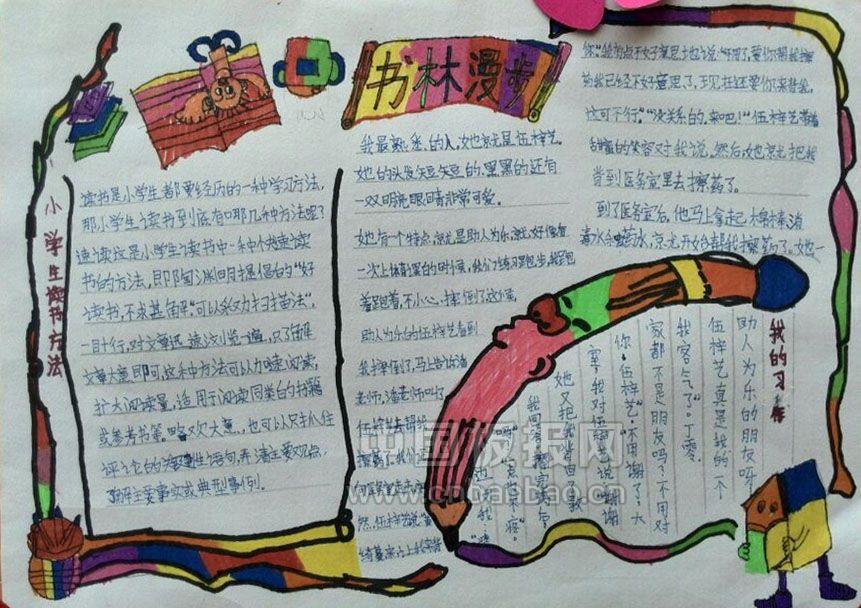 书林漫步
小学生读书方法
读书是小学生都要经历的一种学习方法,
那小学生读书到底有哪几种方法呢?
速读这是小学生读书中一种快速读
书的方法,即陶渊明提倡的"好
读书,不求甚解"可以采取"扫描法",
一目十行,对文章迅速浏览一遍,只了解
文章大意即可,这种方法可以加速阅读,
扩大阅读量,适用于阅读同类的书籍
或参考书等。
评论的
语句,弄清主要观点,
了解主要事实或典型事例.
我最熟悉的人,她就是伍梓艺.
她的头发短短的,黑黑的还有
一双明亮眼睛非常可爱。
她有一个特点,就是助人为乐,就好像有
一次上体育课的时候,我们练习跑步,我跑
着跑着,不小心,摔倒了,这时候,
助人为乐的伍梓艺看到
我摔倒了,马上告诉潘
老师,潘老师叫了
伍梓艺去帮我
擦药。我们
然,伍梓艺说
你."我有点不好意思地说:
我已经不好意思了,现在还要你来背我,
这可不行。""没关系的,来吧!"伍梓艺带着
甜蜜的笑容对我说。然后,她就把我
背到医务室里去擦药了。
到了医务室后,他马上拿起棉棒、消
毒水和药水,就开始帮我擦药了。她一
她又把我背回了教
室,我对伍梓艺说:"谢谢
你,伍梓艺""不用谢了,大
家都不是朋友吗?不用对
我客气了。"丁零
伍梓艺真是我的一个
助人为乐的朋友呀
我的习作
中国板报网
www.cnbanbao.cn